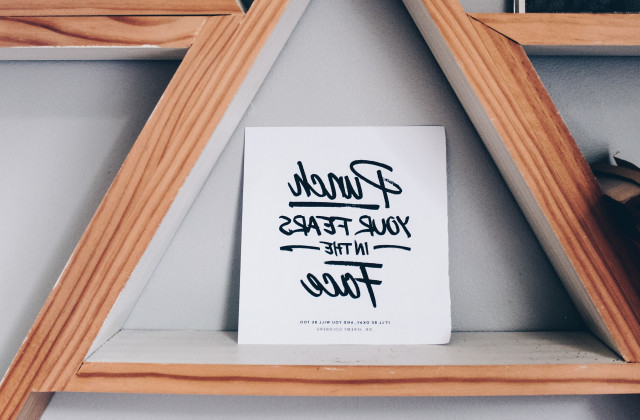 Punch
YOUR FEARS
IN THE
Face
IT'LL BE OKAY, AND YOU WILL BE TOO